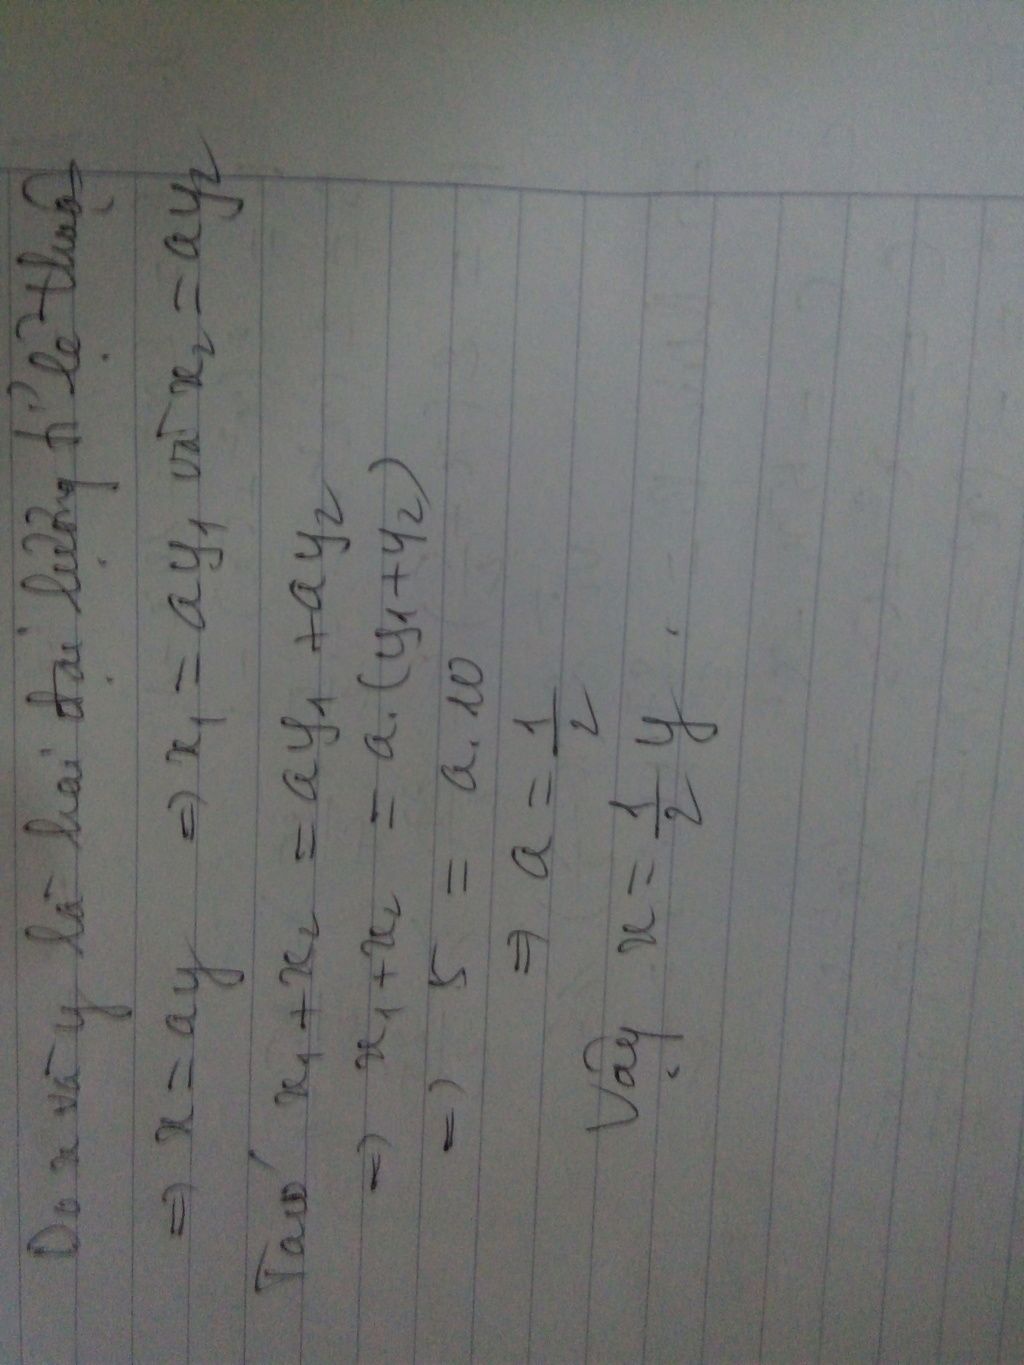 Do x và y là hai đại lượng tỉ lệ thuận
=> x = ay => x₁ = ay₁ và x₂ = ay₂
Ta có x₁ + x₂ = ay₁ + ay₂
=> x₁ + x₂ = a.(y₁ + y₂)
=> 5 = a.10
=> a = 1/2
Vậy x = 1/2 y.